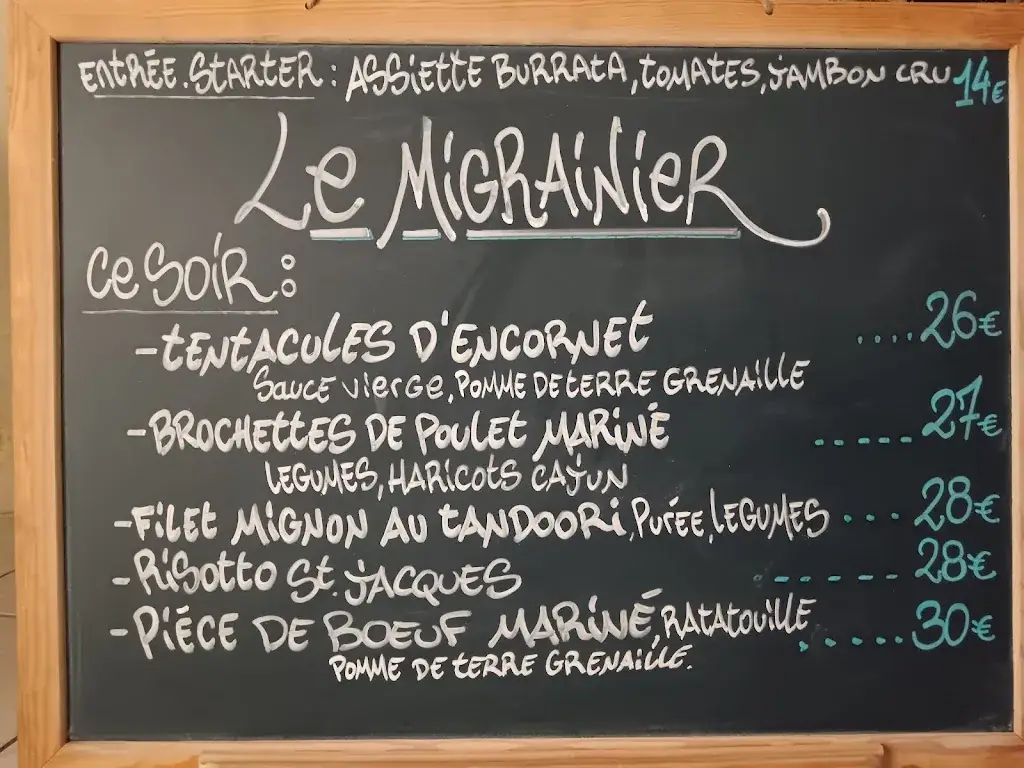 ENTRÉE.STARTER : ASSIETTE BURRATA, TOMATES, JAMBON CRU 14€
LE MIGRAINIER
CE SOIR :
- TENTACULES D'ENCORNET .... 26€
SAUCE VIERGE, POMME DE TERRE GRENAILLE
- BROCHETTES DE POULET MARINÉ ..... 27€
LEGUMES, HARICOTS CAJUN
- FILET MIGNON AU TANDOORI, PURÉE, LEGUMES ... 28€
- RISOTTO ST. JACQUES ...... 28€
- PIÉCE DE BOEUF MARINÉ, RATATOUILLE ..... 30€
POMME DE TERRE GRENAILLE.